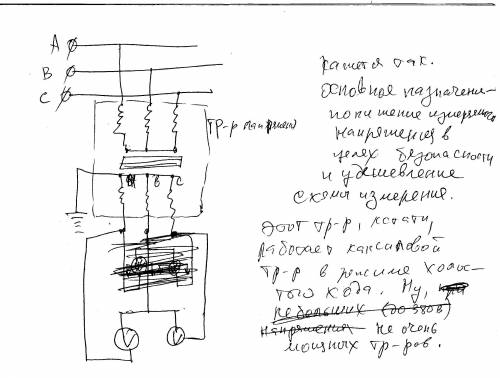 A
B
C
ТР-р напряжен
A
B
C
V
V
кажется так.
Основное назначени-
понижение измеряемого
напряжения в
целях безопасности
и удешевление
схемы измерения.
Этот тр-р, кстати,
работает как силовой
тр-р в режиме холос-
того хода. Ну, при
небольших (до 380В)
напряжениях не очень
мощных тр-ров.